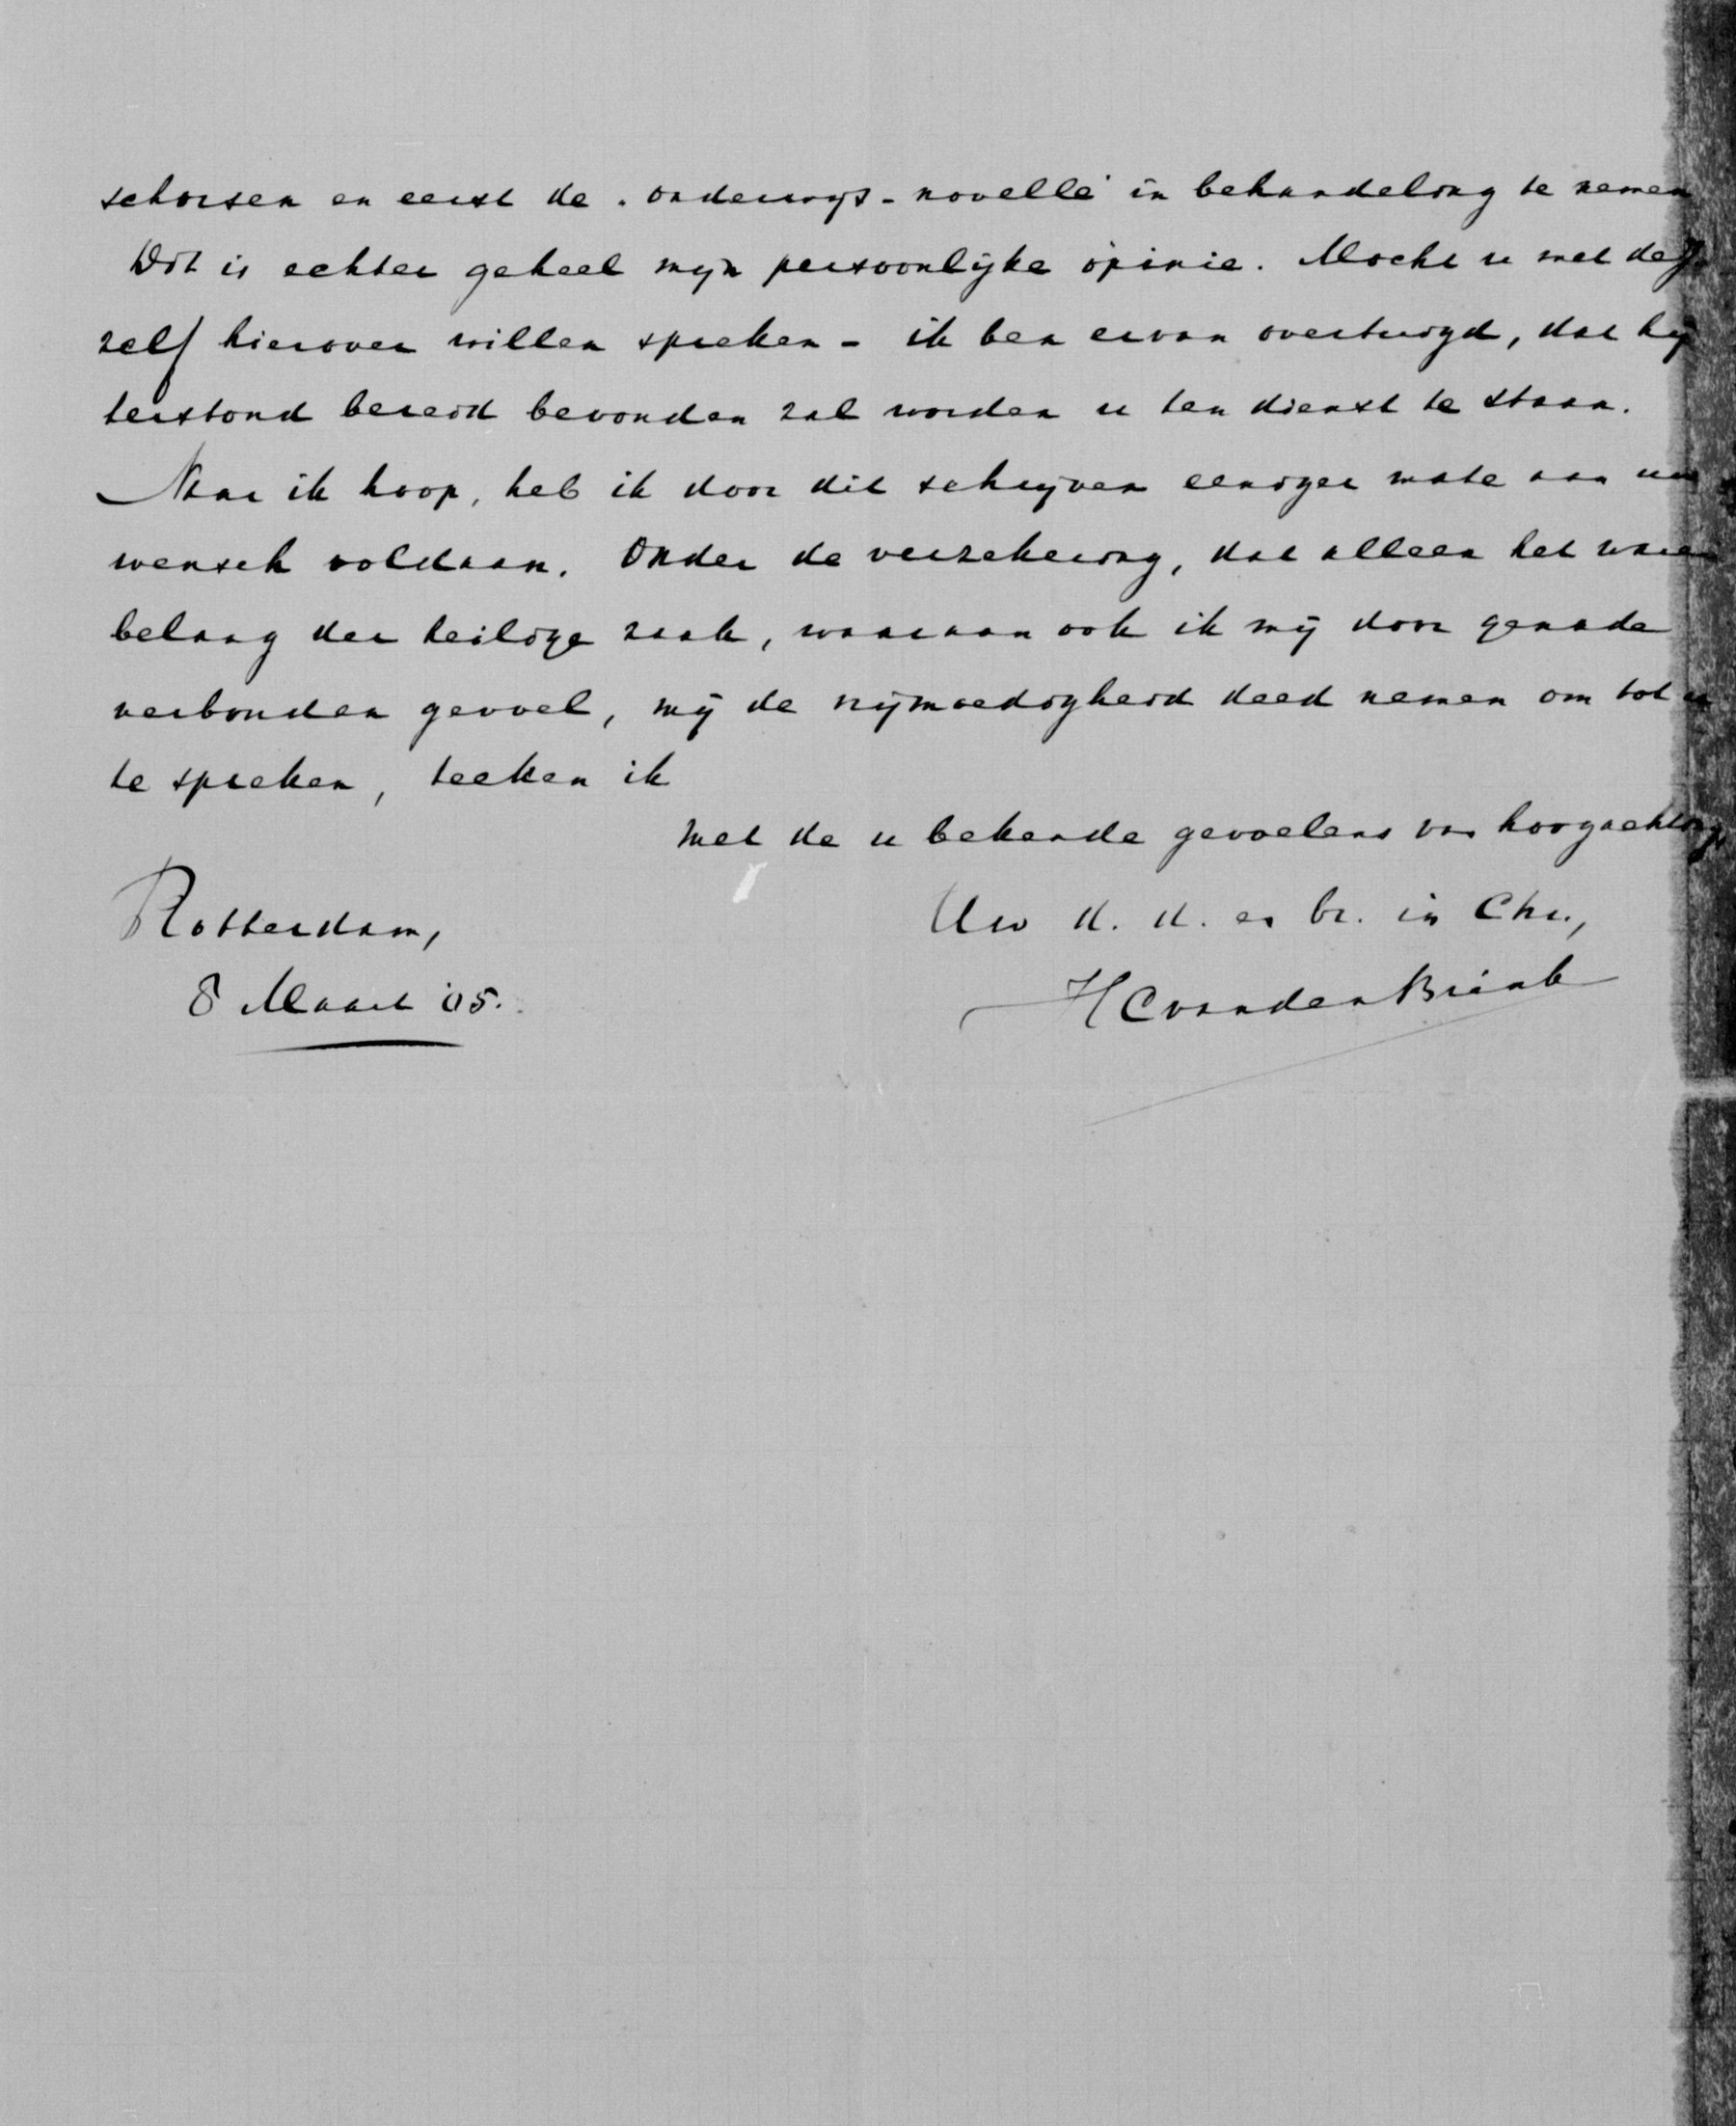 schorsen en eerst de "onderwijs-novelle" in behandeling te nemen
Dit is echter geheel mijn persoonlijke opinie. Mocht u met
zelf hierover willen spreken - ik ben ervan overtuigd, dat hij
terstond bereid bevonden zal worden u ten dienst te staan.
Naar ik hoop, heb ik door dit schrijven eeniger mate aan uw
wensch voldaan. Onder de verzekering, dat alleen het ware
belang der heilige zaak, waaraan ook ik mij door genade
verbonden gevoel, mij de vrijmoedigheid deed nemen om tot u
te spreken, teeken ik
met de u bekende gevoelens van hoogachting
Rotterdam,
8 Maart '05.
Uw d. d. en br. in Chr.,
HCvandenBrink